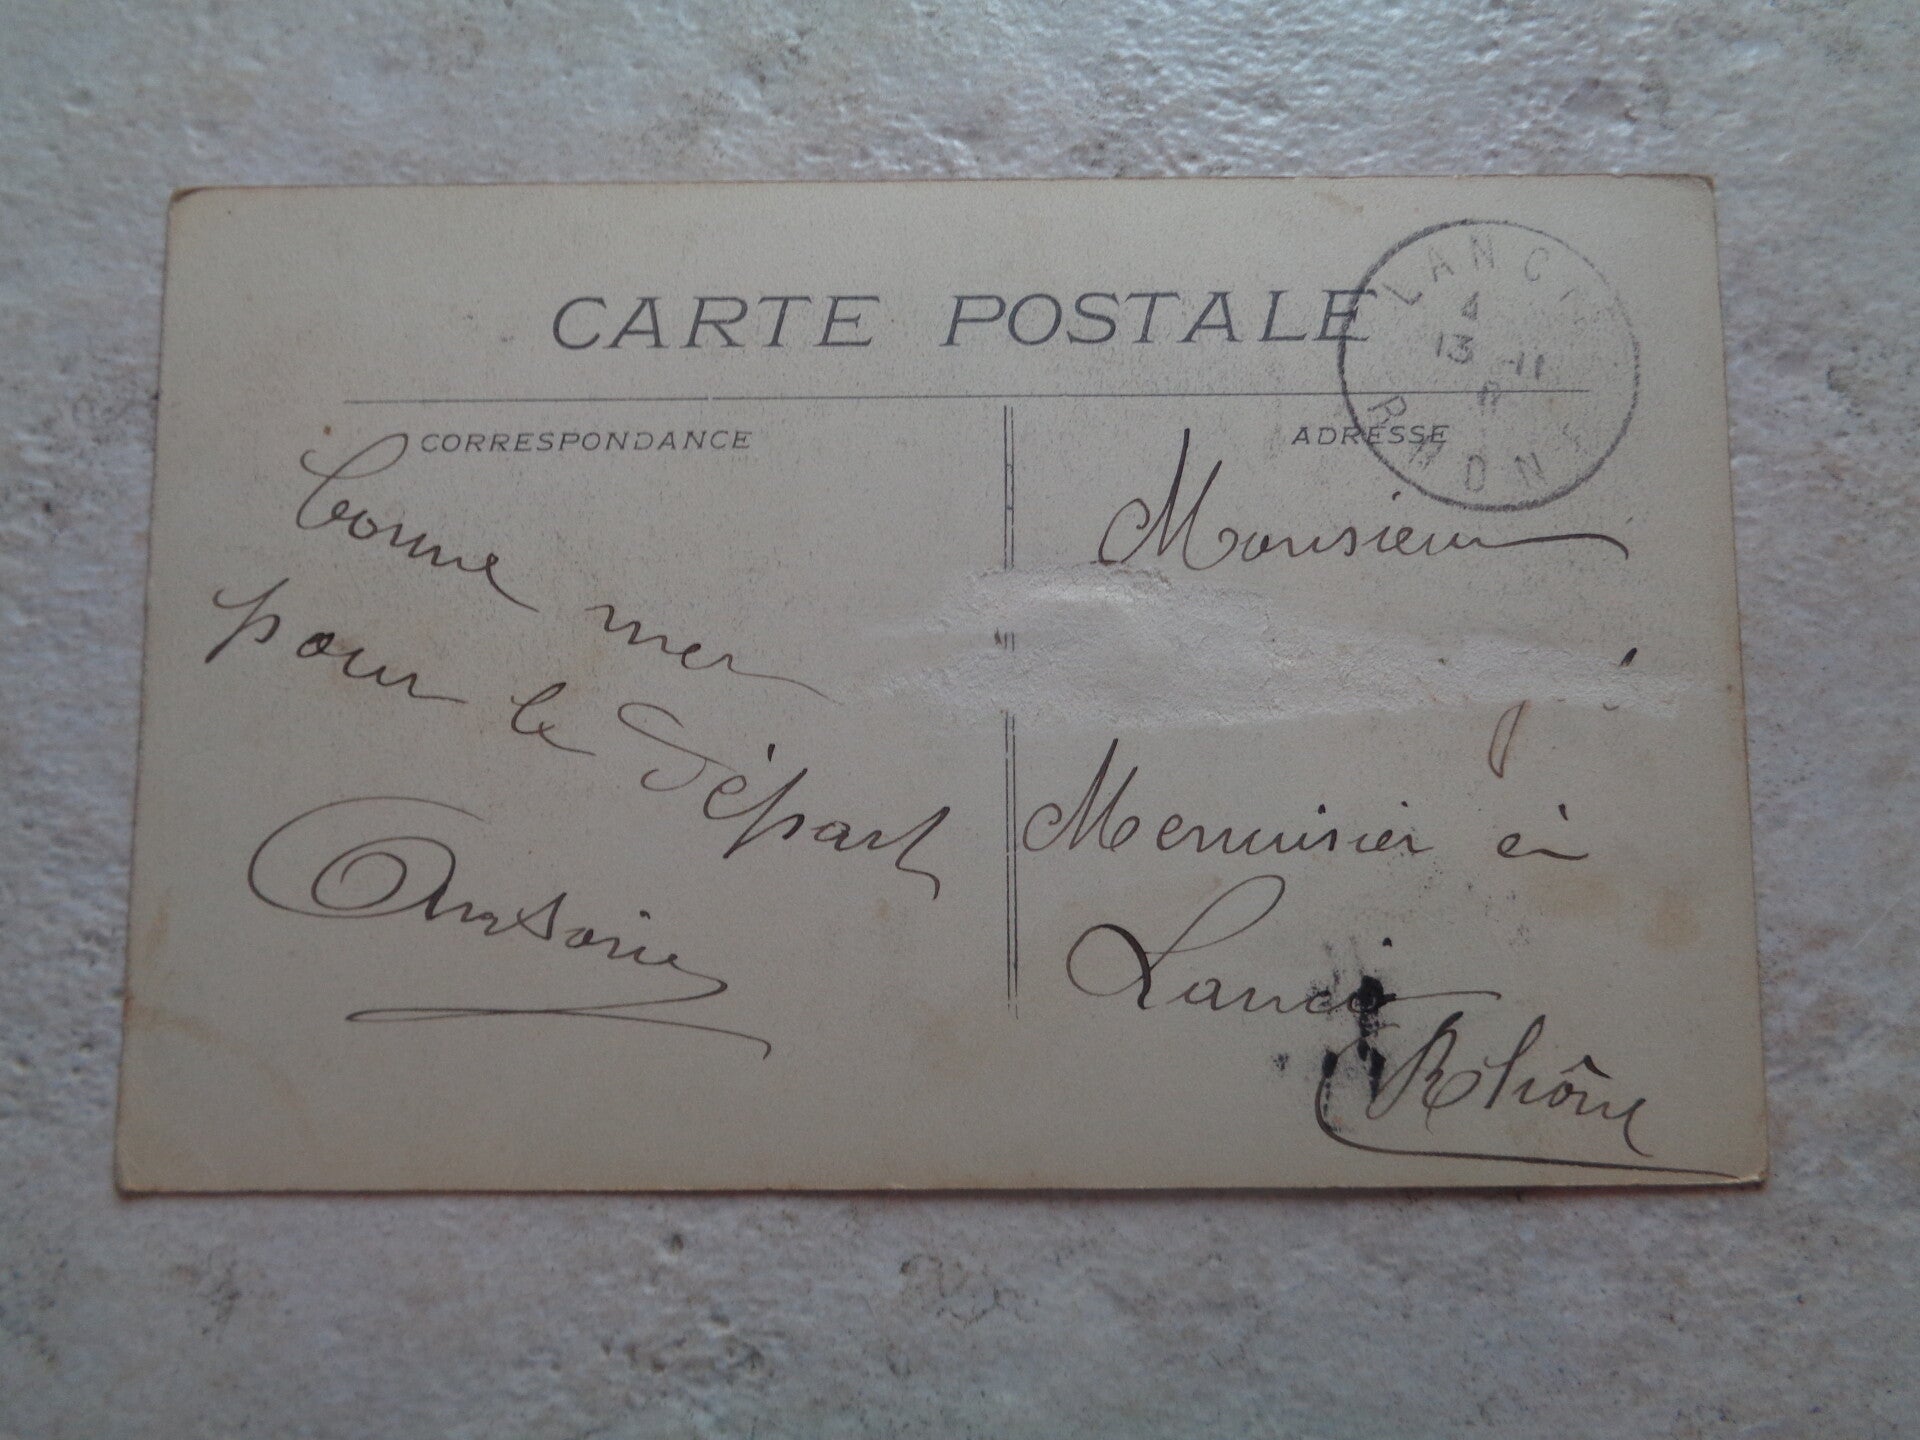 CARTE POSTALE
LANCIÉ
4
13 -11
RHONE
CORRESPONDANCE
bonne mer
pour le départ
Antoine
ADRESSE
Monsieur
Menuisier à
Lancié
Rhône